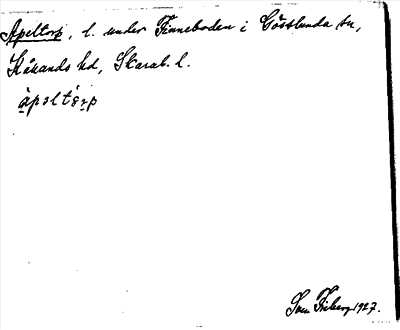 Apeltorp, l. under Finneboden i Gösslunda sn,
Kåkands hd, Skarab. l.
àpəltò̤rp
Sven Friberg 1927.